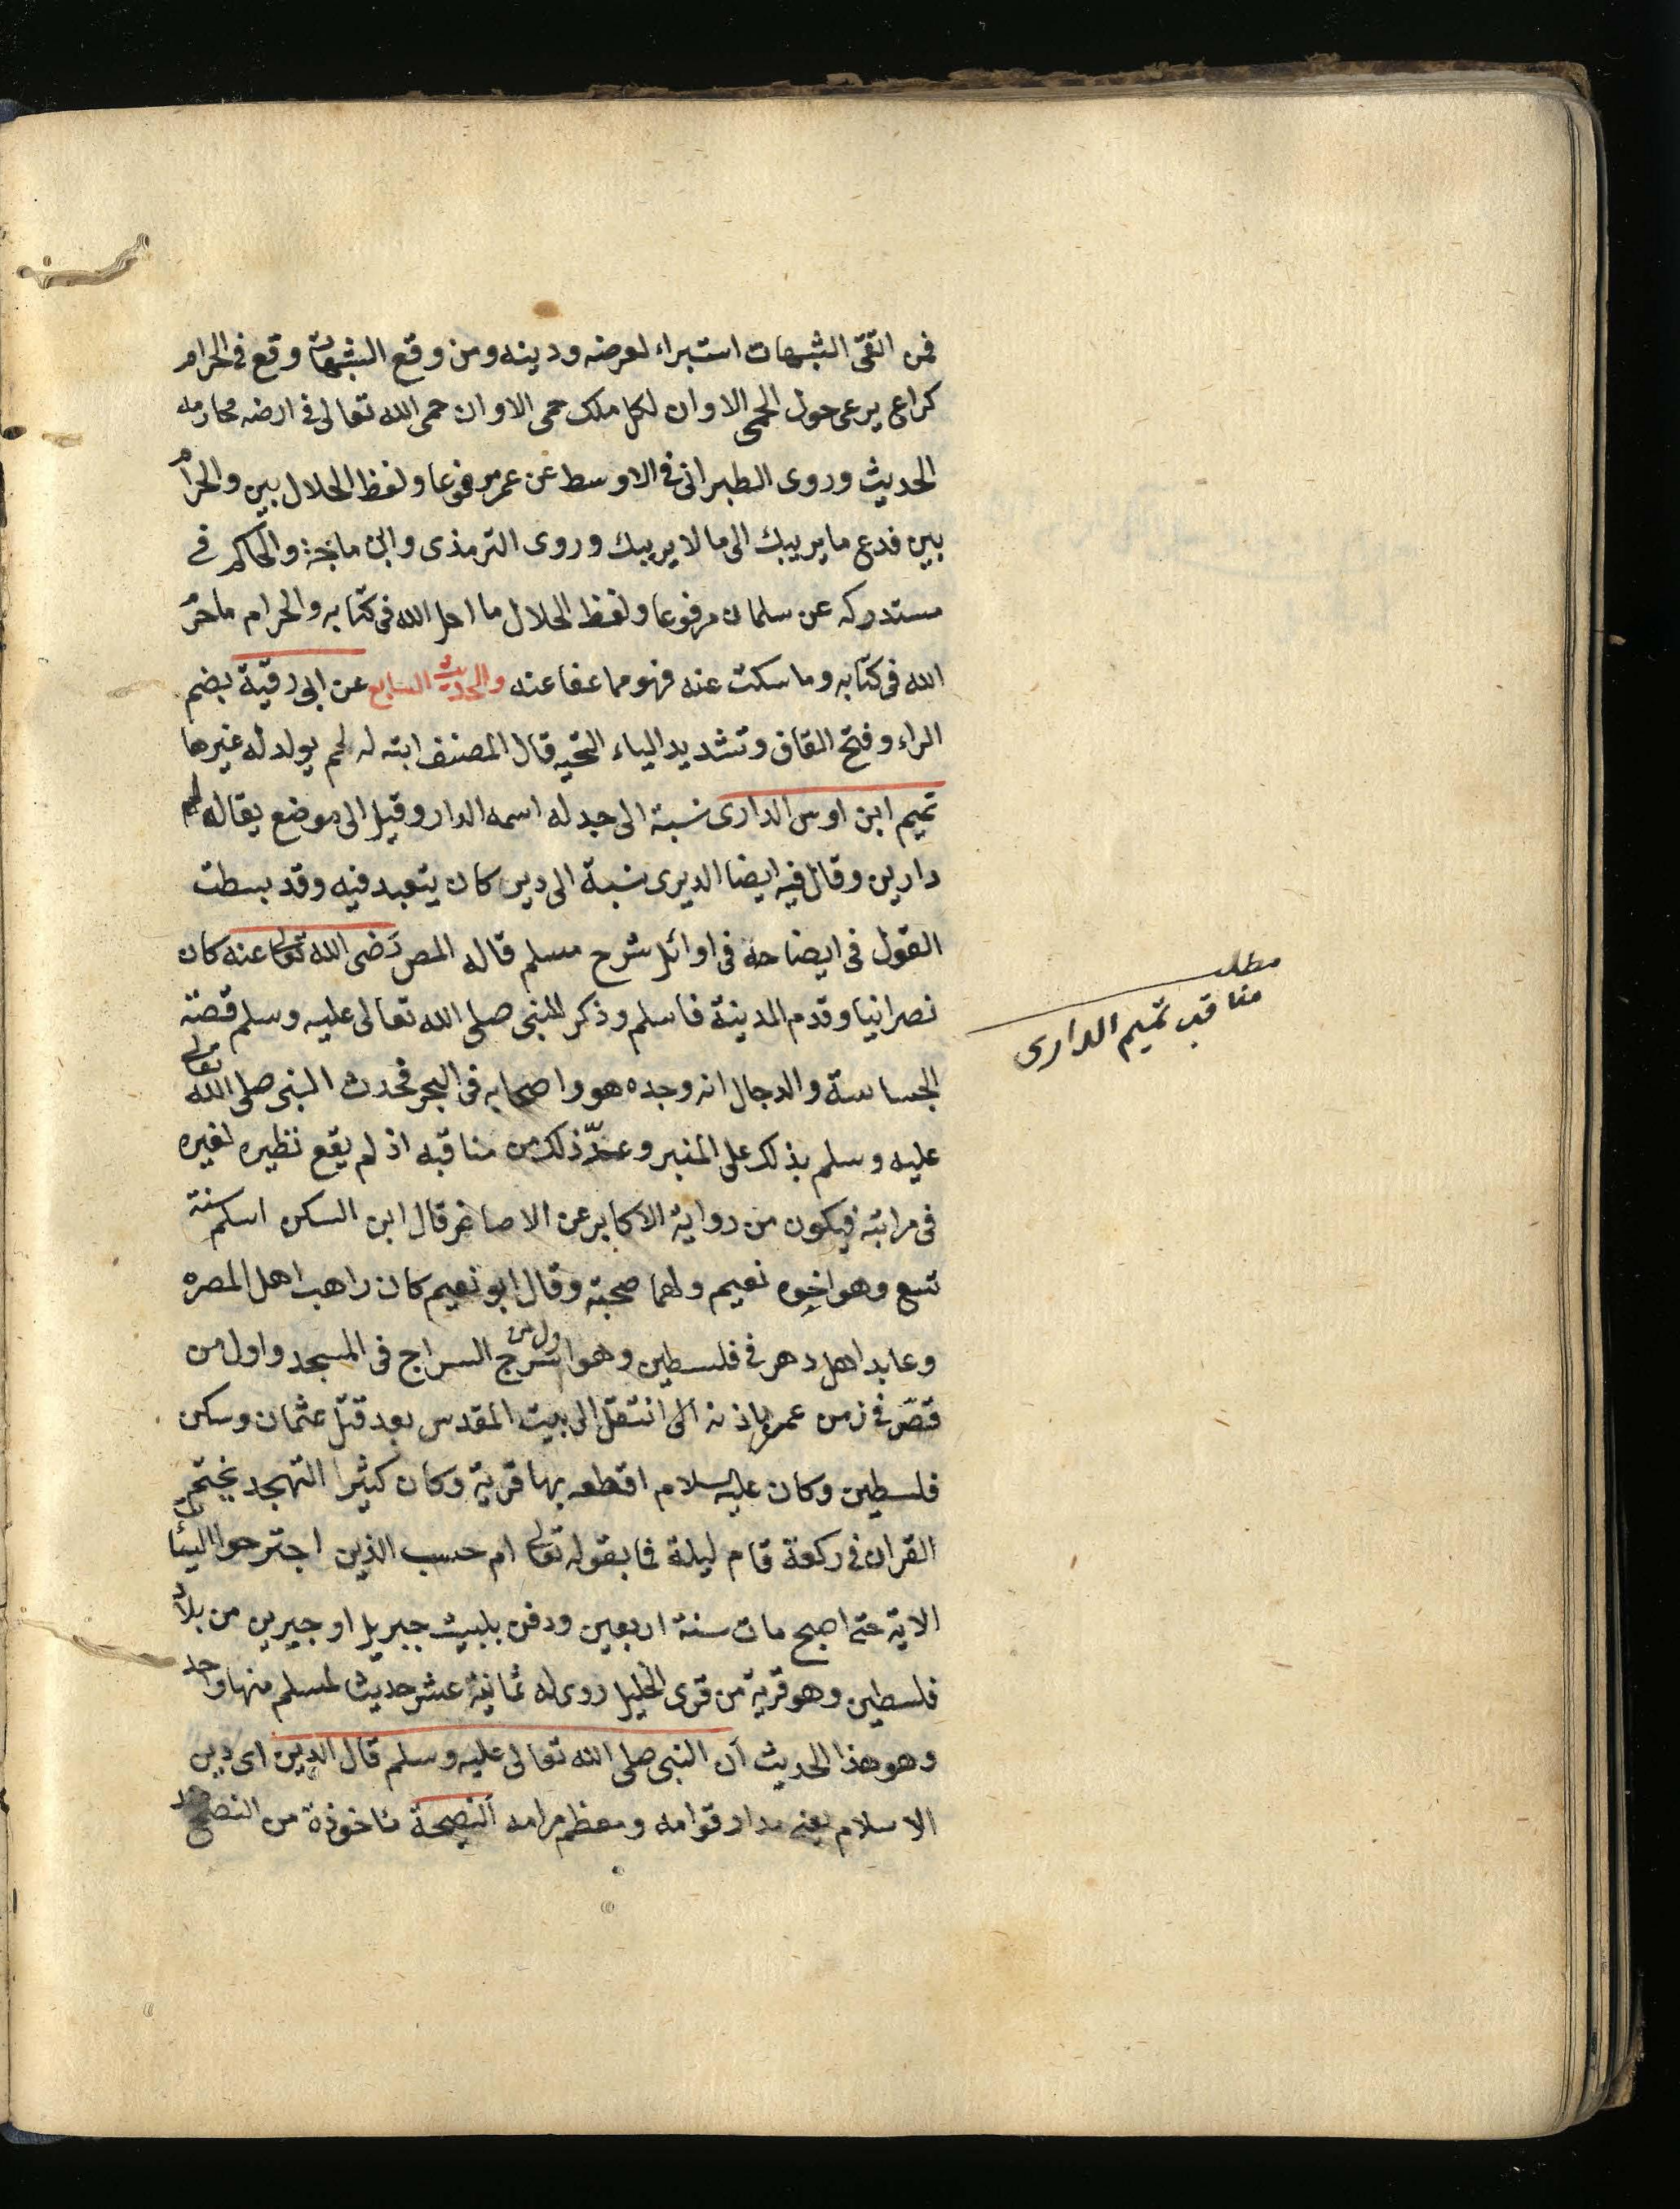 فمن اتقى الشبهات استبراء لعرضه ودينه ومن وقع الشبهات وقع في الحرام
كراع يرعى حول الحمى الا وان لكل ملك حمى الا وان حمى الله تعالى في ارضه محارمه
الحديث وروى الطبراني في الاوسط عن عمر مرفوعا ولفظ الحلال بين والحرام
بين فدع ما يريبك الى ما لا يريبك وروى الترمذى وابن ماجة والحاكم في
مستدركه عن سلمان مرفوعا ولفظ الحلال ما احل الله في كتابه والحرام ما حرّ
الله في كتابه وما سكت عنه فهو مما عفا عنه والحديث السابع عن ابى رقيّة بضم
الراء وفتح القاف وتشديد الياء التحيه قال المصنف ابنته له لم يولد له غيرها
تميم ابن اوس الدارى نسبة الى جد له اسمه الدار وقيل الى موضع يقال له
دارين وقال فيه ايضا الديرى نسبة الى دير كان يتعبد فيه وقد بسطت
القول في ايضاحه في اوائل شرح مسلم قاله المص رَضى الله تعالى عنه كان
نصرانيا وقدم المدينة فاسلم وذكر للنبى صلى الله تعالى عليه وسلم قصّة
الجساسة والدجال انه وجده هو واصحابه في البحر فحدث النبى صلى الله تعالى
عليه وسلم بذلك على المنبر وعدّ ذلك من مناقبه اذ لم يقع نظيره لغيره
في مراتبه فيكون من رواية الاكابر عن الاصاغر قال ابن السكن اسلم سنة
تسع وهو اخوه نعيم ولهما صحبة وقال ابو نعيم كان راهب اهل المصره
وعابد اهل دهر في فلسطين وهو اول من سرج السراج في المسجد واول من
قصّ في زمن عمر باذنه الى انتقل الى بيت المقدس بعد قتل عثمان وسكن
فلسطين وكان عليه السلام اقطعه بها قرية وكان كثيرا التهجد يختم
القران في ركعة قام ليلة فابقوله تعالى ام حسب الذين اجترحوا السيئات
الاية حتى اصبح مات سنة اربعين ودفن ببيت جبريل او جيرين من بلاد
فلسطين وهو قرية من قرى الخليل روى له ثمانية عشر حديث لمسلم منها واحد
وهو هذا الحديث أن النبى صلى الله تعالى عليه وسلم قال الدين اى دين
الاسلام يعنى مدار قوامه ومعظم مرامه ألنصيحة ماخوذة من النصح
مطلب
مناقب تميم الدارى